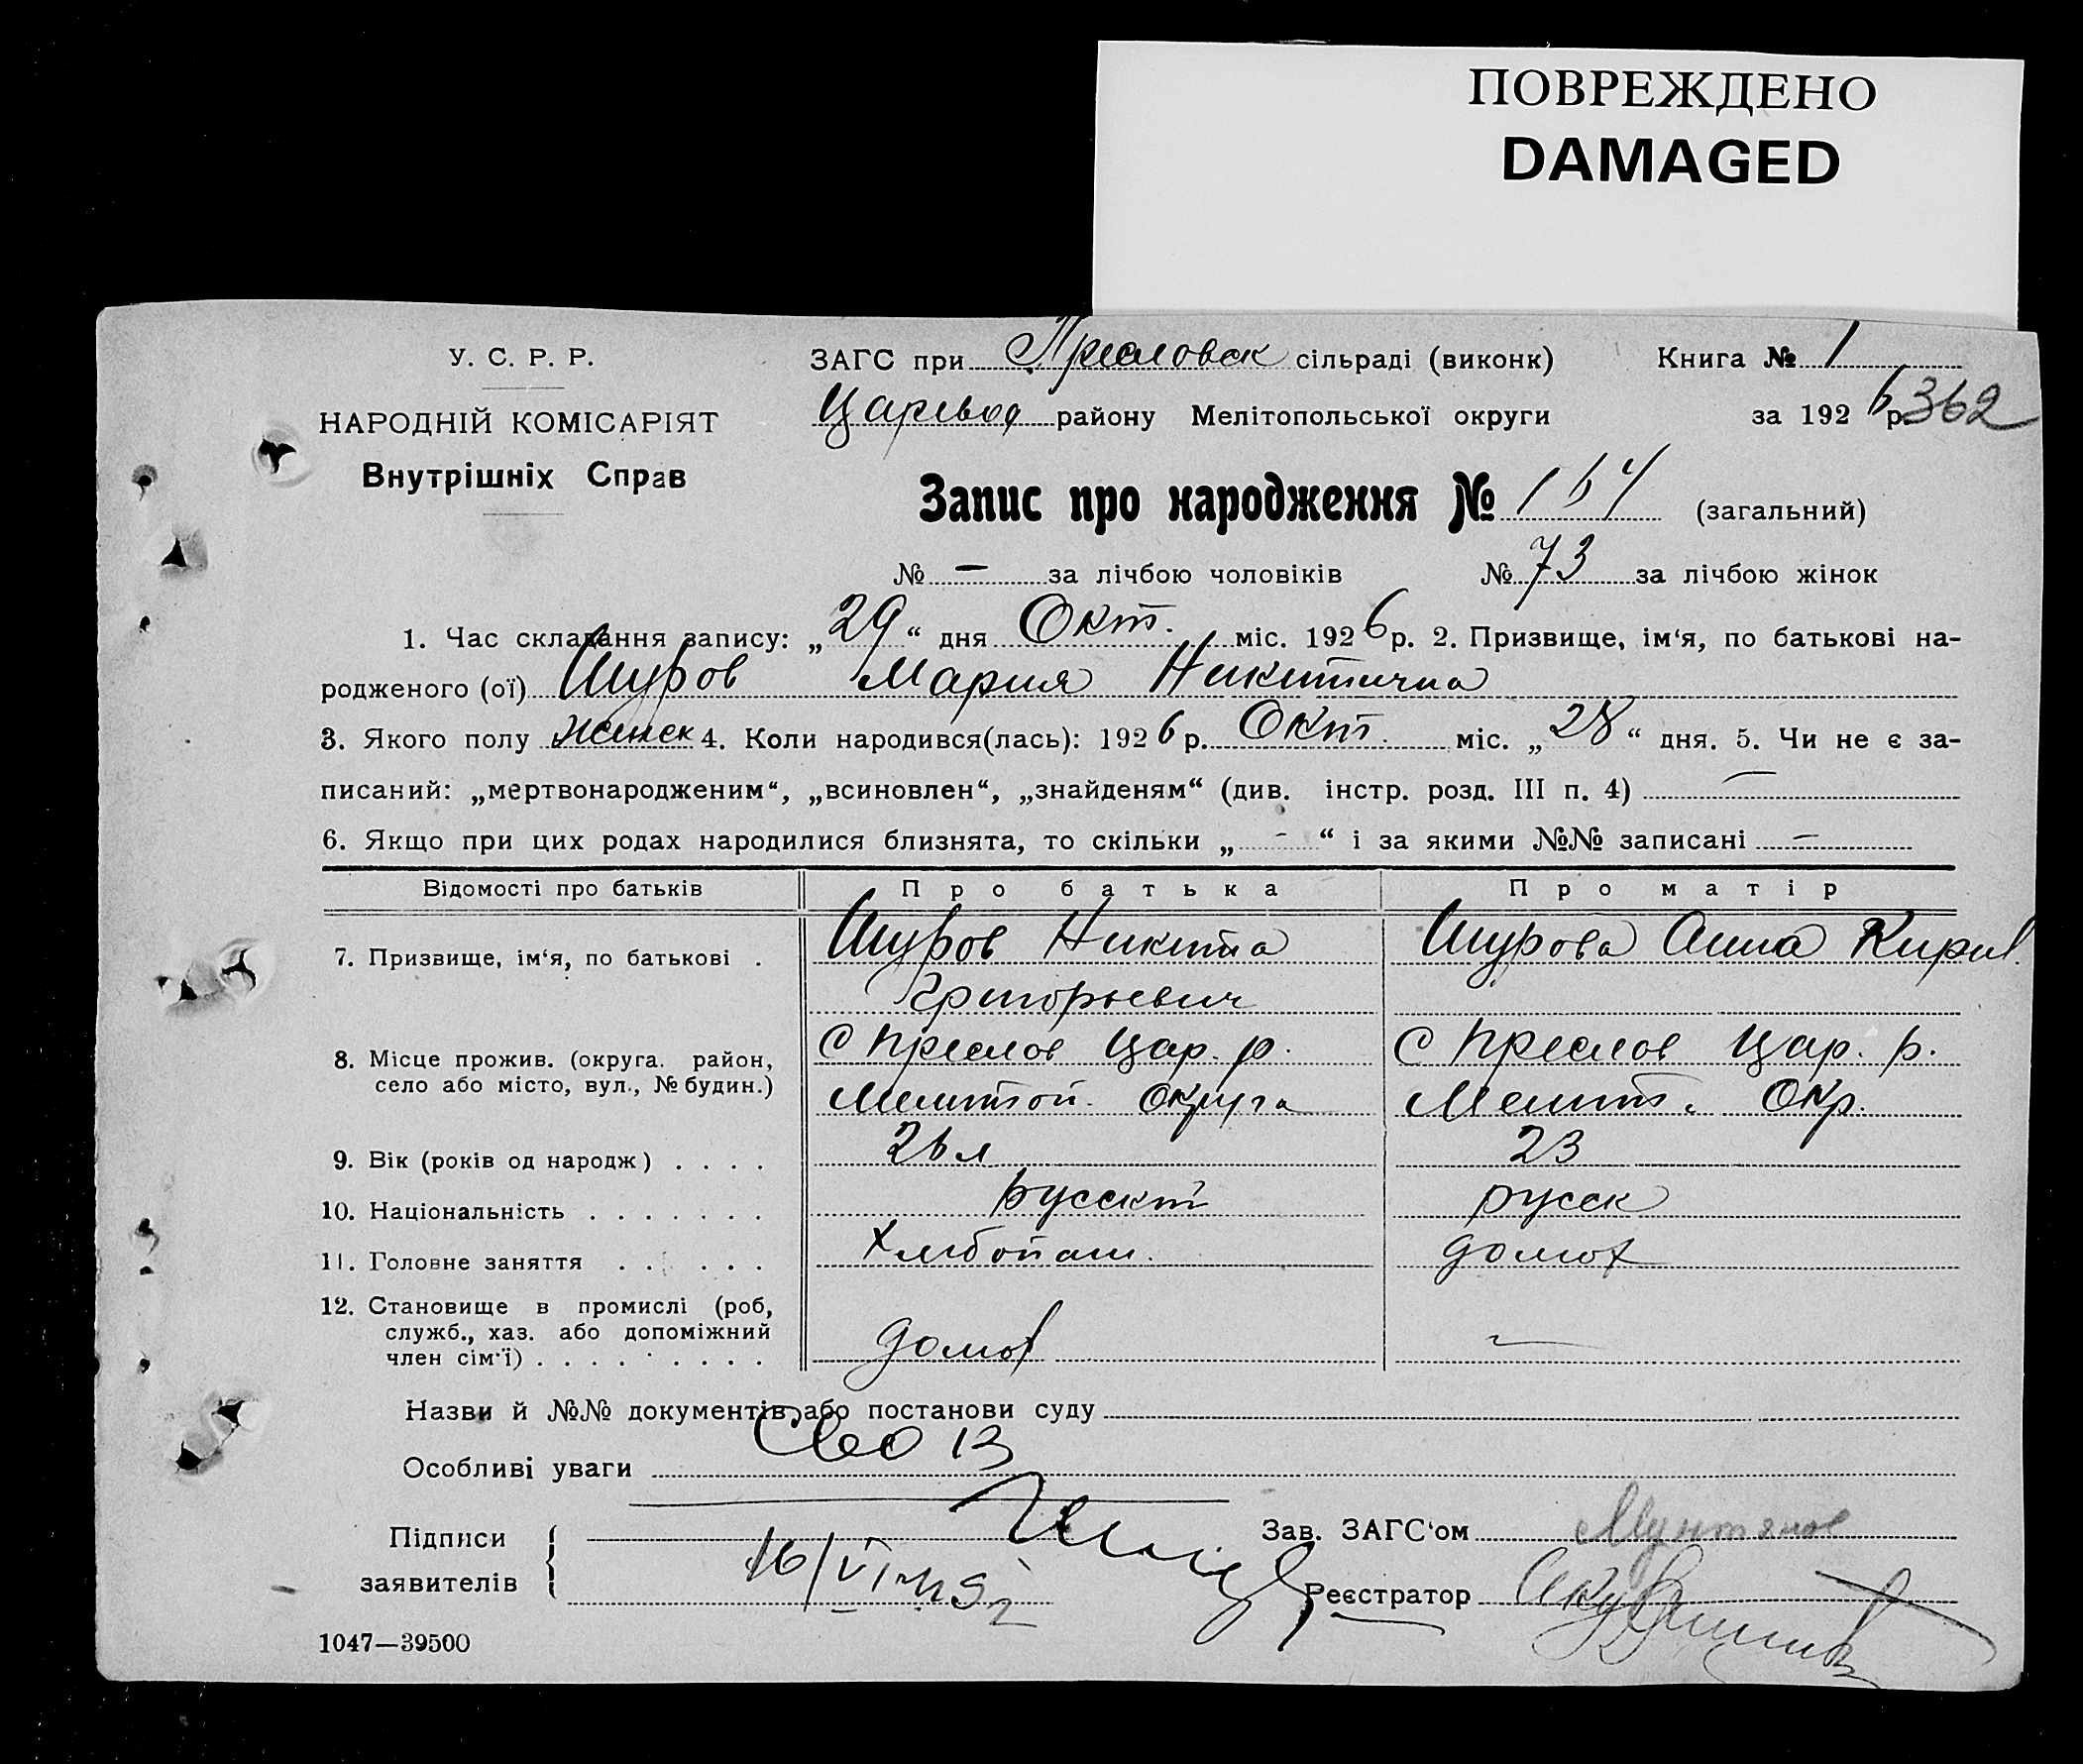 ПОВРЕЖДЕНО
DAMAGED
У. С. Р. Р.
НАРОДНІЙ КОМІСАРІЯТ
Внутрішніх Справ
ЗАГС при Преславск сільраді (виконк) Книга № 1
Царевод району Мелітопольської округи за 1926 р. 362
Запис про народження № 154 (загальний)
№ — за лічбою чоловіків № 73 за лічбою жінок
1. Час складання запису: „29“ дня Окт. міс. 1926 р. 2. Призвище, ім‘я, по батькові на-
родженого (ої) Шуров Мария Никитична
3. Якого полу женск 4. Коли народився(лась): 1926 р. Окт. міс. „28“ дня. 5. Чи не є за-
писаний: „мертвонародженим“, „всиновлен“, „знайденям“ (див. інстр. розд. III п. 4) —
6. Якщо при цих родах народилися близнята, то скільки „ - “ і за якими №№ записані —
Відомості про батьків Про батька Про матір
7. Призвище, ім‘я, по батькові . Шуров Никита Шурова Анна Кирил.
Григорьевич
8. Місце прожив. (округа. район, С Преслов Цар. р. С Преслов Цар. р.
село або місто, вул., № будин.) Мелитоп. Округа Мелит. Окр.
9. Вік (років од народж) . . . . 26 л 23
10. Національність . . . . . . . русский русск
11. Головне заняття . . . . . . Хлібопаш. домох
12. Становище в промислі (роб,
служб., хаз. або допоміжний
член сім‘ї) . . . . . . . . . домов —
Назви й №№ документів або постанови суду
Особливі уваги
Підписи
заявителів
Зав. ЗАГС‘ом
Реєстратор
1047—39500